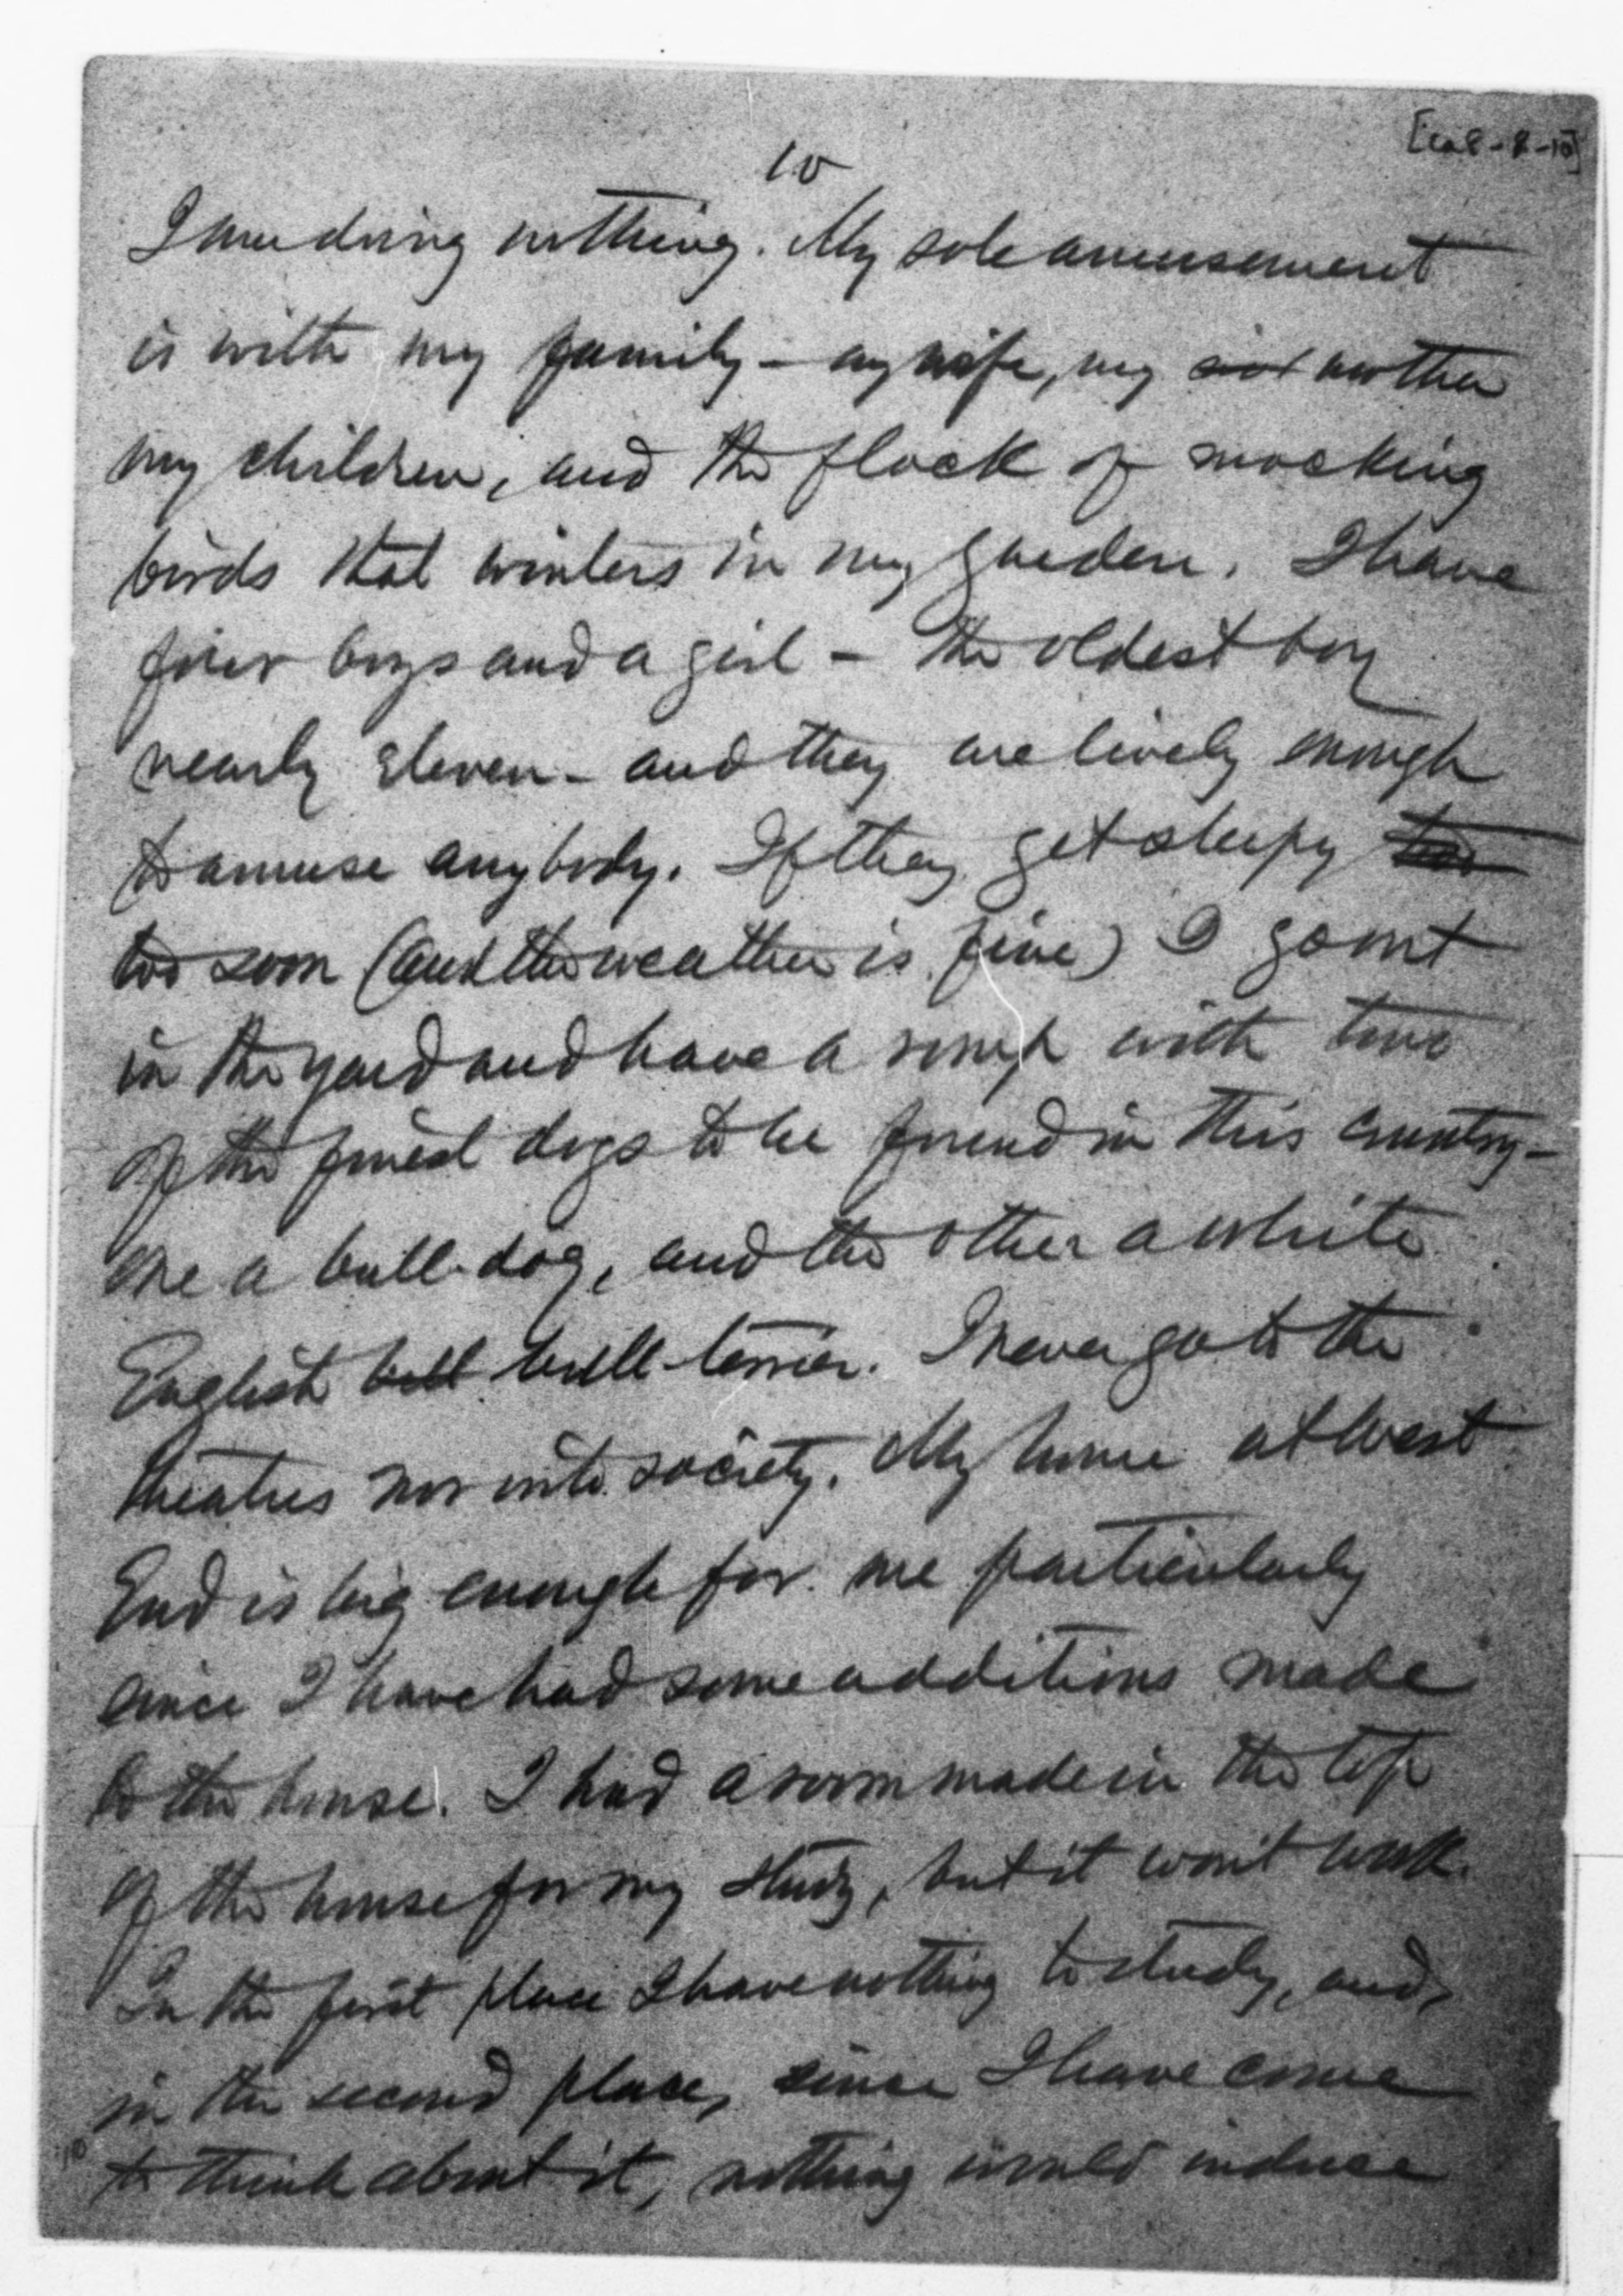 10
I am doing nothing. My sole amusement
is with my family – my wife, my sist mother
my children, and the flock of mocking
birds that winters in my garden. I have
four boys and a girl – the oldest boy
nearly eleven – and they are lively enough
to amuse anybody. If they get sleepy too
too soon (and the weather is fine) I go out
in the yard and have a romp with two
of the finest dogs to be found in this country –
one a bull-dog, and the other a white
English bull bull-terrier. I never go to the
theatres nor into society. My home at West
End is big enough for me particularly
since I have had some additions made
to the house. I had a room made in the top
of the house for my study, but it won't work.
In the first place I have nothing to study, and,
in the second place, since I have come
to think about it, nothing would induce